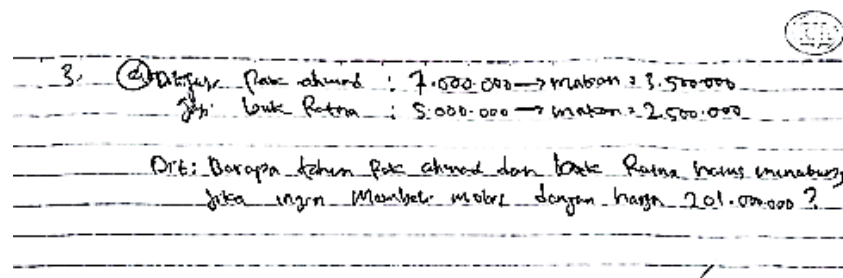 3. a) Pak ahmad : 7.000.000 → makan = 3.500.000
buk Ratna : 5.000.000 → makan = 2.500.000
Dit: Berapa tahun Pak ahmad dan buk Ratna harus menabung
jika ingin Membeli mobil dengan harga 201.000.000 ?